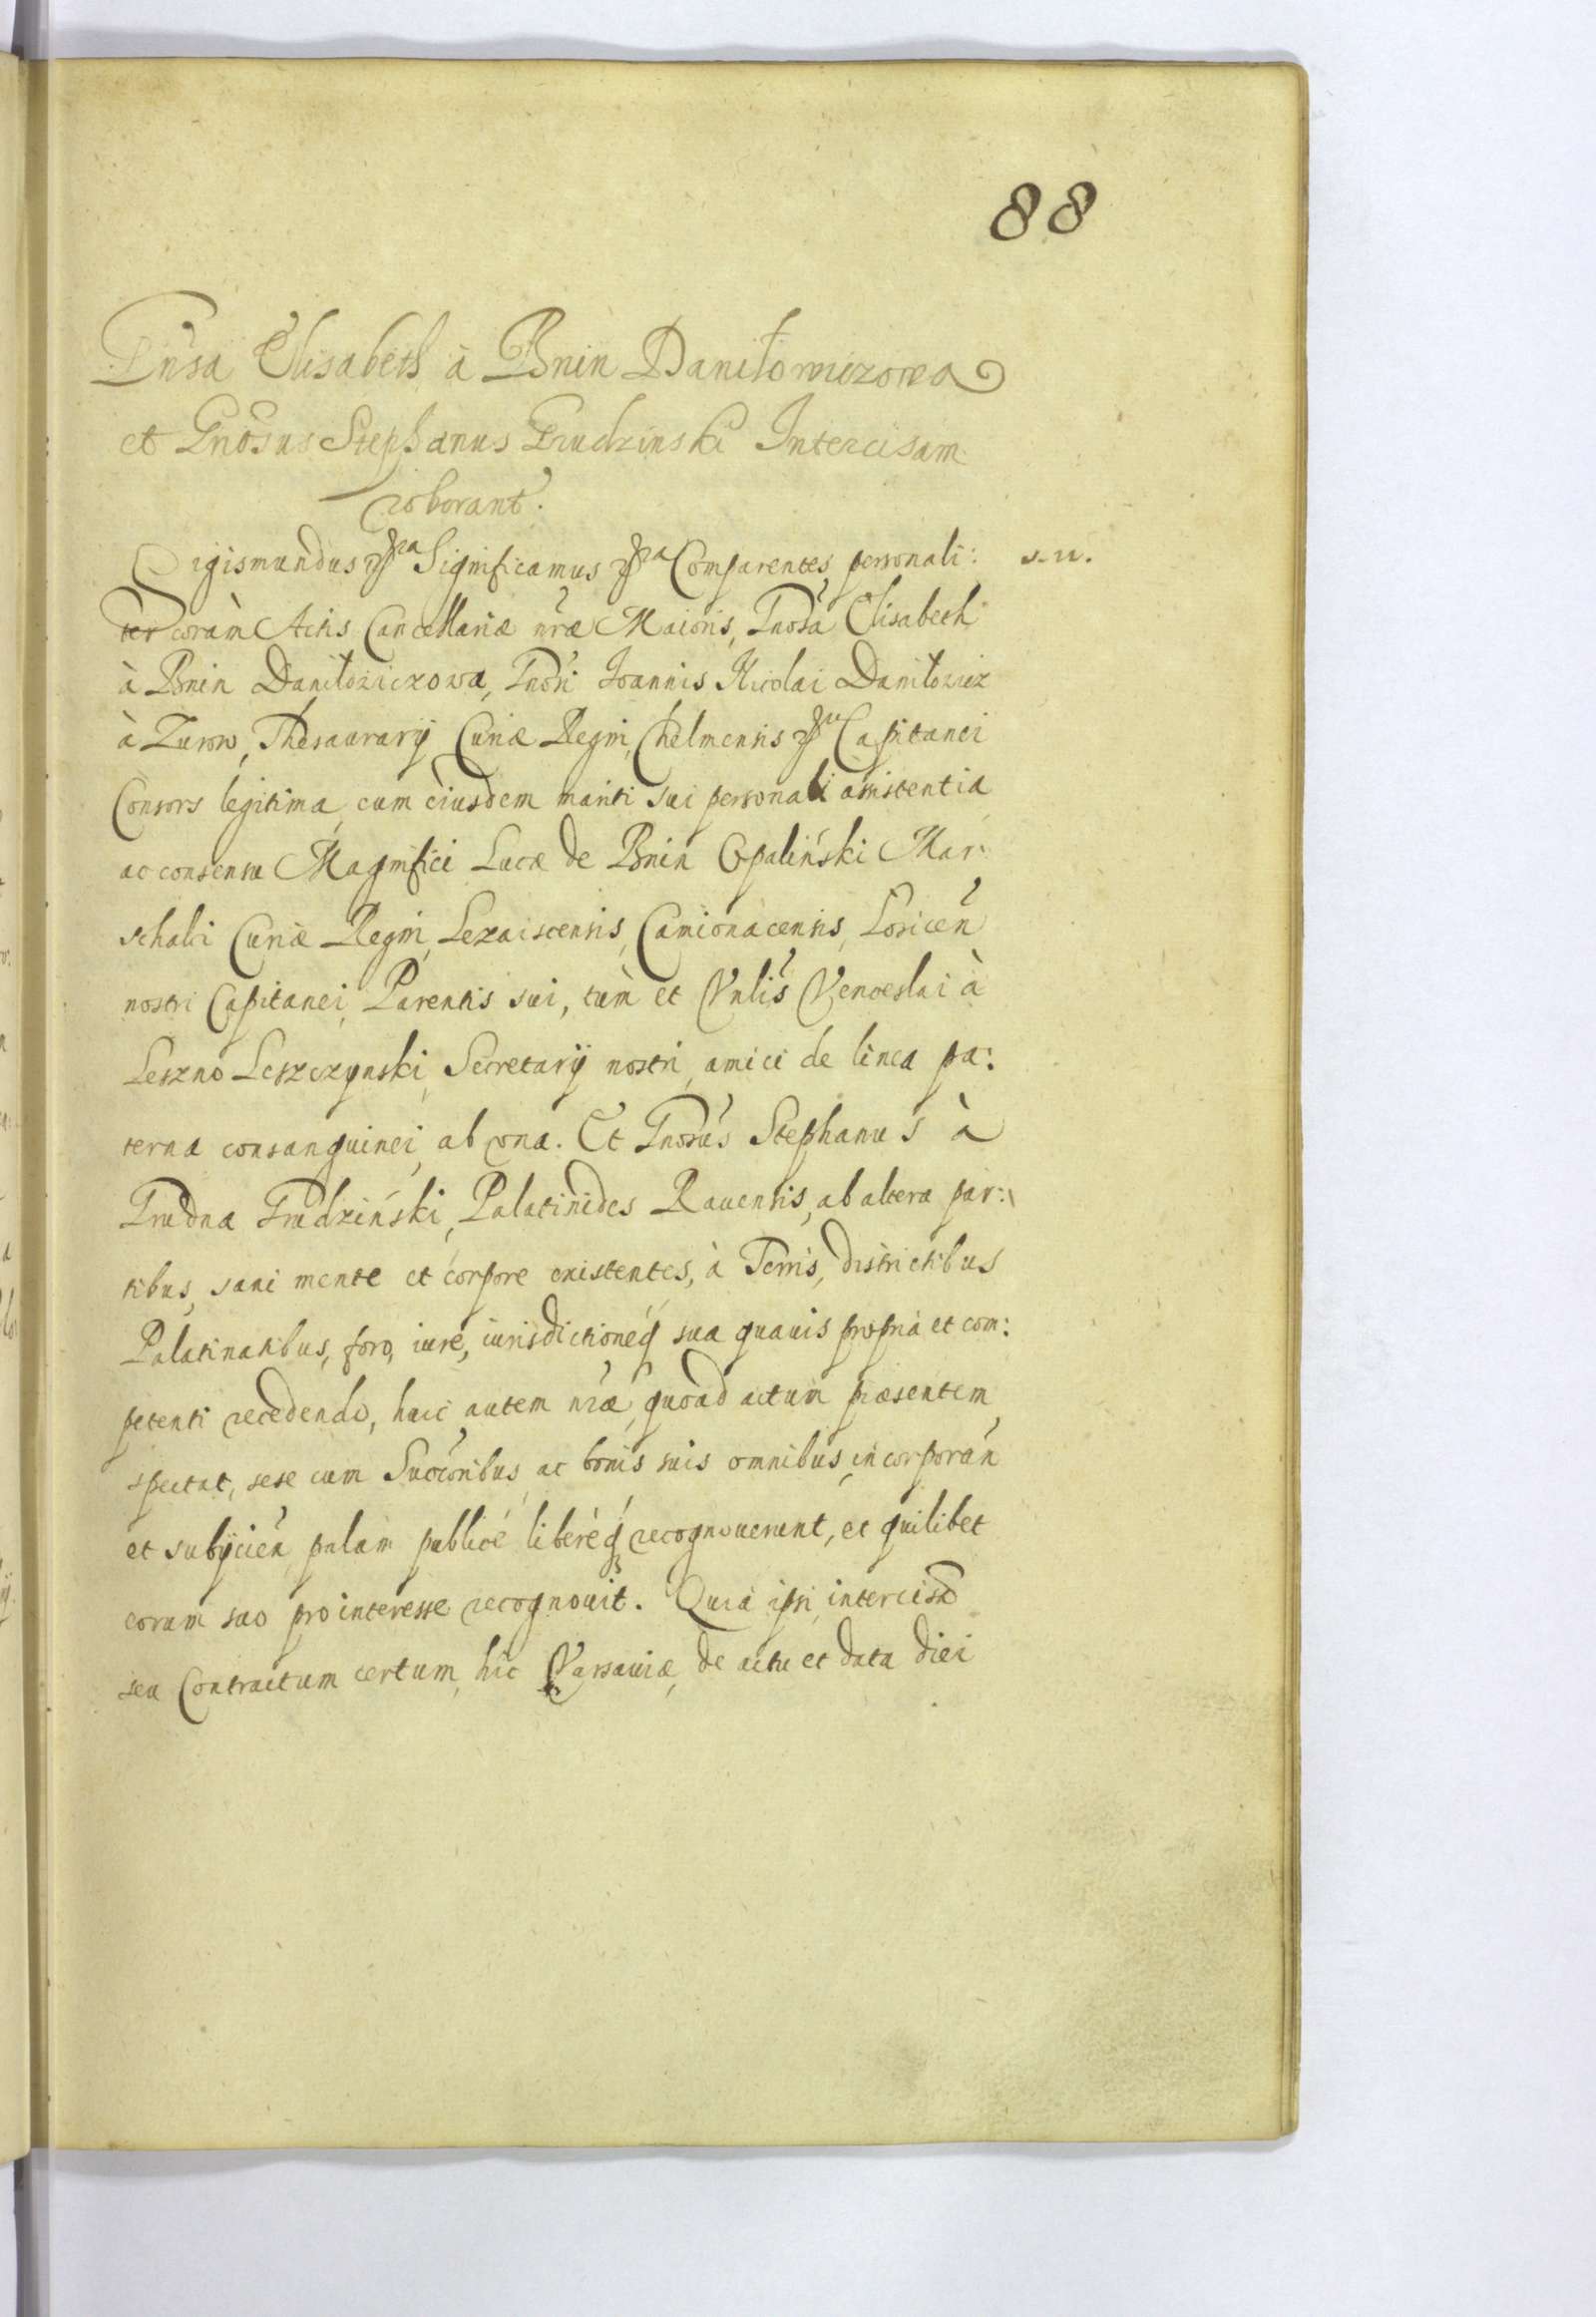 88
Gnsa Elisabeth à Bnin Daniłowiczowa
et Gnosus Stephanus Grudzinski Intercisam
roborant.
Sigismundus &ra Significamus &ra Comparentes personali: s. u.
ter coràm Actis Cancellariæ nræ Maioris, Gnosa Elisabeth
à Bnin Daniłoviczowa, Gnosi Ioannis Nicolai Daniłowicz
à Zurow, Thesaurarij Curiæ Regni, Chelmensis &ra Capitanei
Consors legitima, cum eiusdem mariti sui personali assistentia
ac consensu Magnifici Lucæ de Bnin Opaliński Mar:
schalci Curiæ Regni, Lezaiscensis, Camionacensis, Losicen
nostri Capitanei, Parentis sui, tùm et Gnlis Venceslai à
Leszno Leszczynski, Secretarij nostri, amici de linea pa:
terna consanguinei, ab vna. Et Gnosus Stephanus à
Grudna Grudziński, Palatinides Rauensis, ab altera par:
tibus, sani mente et corpore existentes, à Terris, districtibus
Palatinatibus, foro, iure, iurisdictioneq sua quauis propria et com:
petenti recedendo, huic autem nræ, quoad actum præsentem
spectat, sese cum Succoribus, ac bonis suis omnibus, incorporan
et subijcien palam publicè liberèq recognouerunt, et quilibet
eorum suo pro interesse recognouit. Quia ipsi intercisā
seu Contractum certum, hic Varsauiæ, de actu et data diei